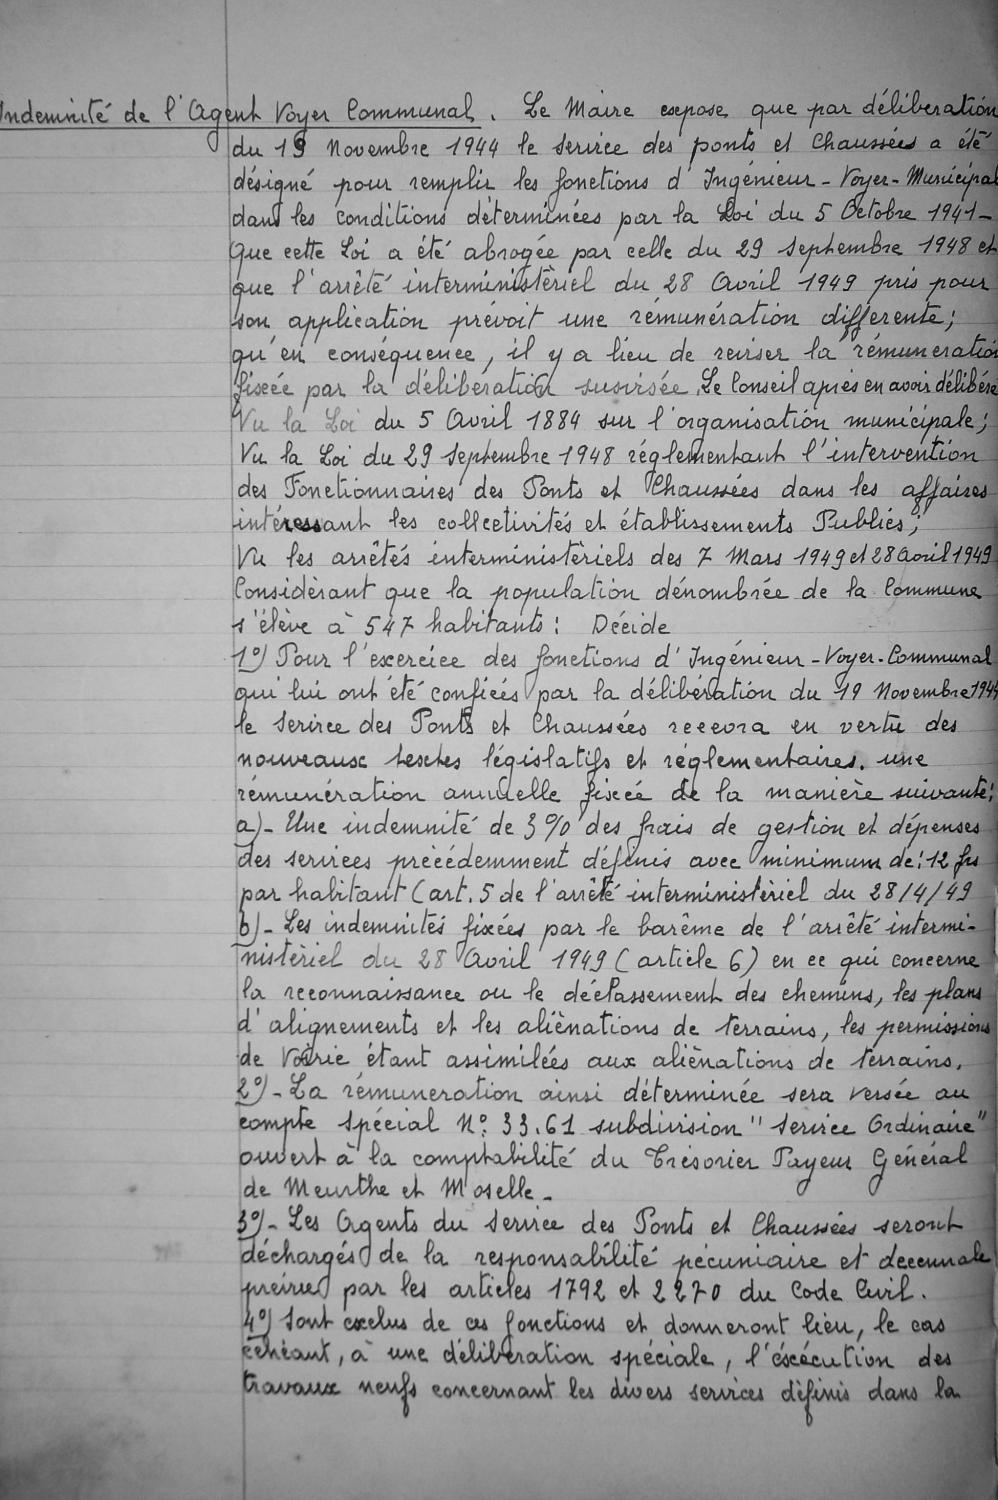 Indemnité de l'Agent Voyer Communal. Le Maire expose que par délibération
du 19 Novembre 1944 le service des ponts et Chaussées a été
désigné pour remplir les fonctions d'Ingénieur-Voyer-Municipal
dans les conditions déterminées par la Loi du 5 Octobre 1941-
Que cette Loi a été abrogée par celle du 29 Septembre 1948 et
que l'arrêté interministèriel du 28 Avril 1949 pris pour
son application prévoit une rémunération differente;
qu'en conséquence, il y a lieu de reviser la rémuneration
fixée par la délibération susvisée. Le Conseil après en avoir délibéré
Vu la Loi du 5 Avril 1884 sur l'organisation municipale;
Vu la Loi du 29 Septembre 1948 réglementant l'intervention
des Fonctionnaires des Ponts et Chaussées dans les affaires
intéressant les collectivités et établissements Publics;
Vu les arrêtés interministèriels des 7 Mars 1949 et 28 avril 1949
Considèrant que la population dénombrée de la Commune
s'élève à 547 habitants: Décide
1°) Pour l'exercice des fonctions d'Ingénieur-Voyer-Communal
qui lui ont été confiées par la délibération du 19 Novembre 1944
le Service des Ponts et Chaussées recevra en vertu des
nouveaux textes législatifs et réglementaires. une
rémunération annuelle fixée de la manière suivante:
a)- Une indemnité de 3% des frais de gestion et dépenses
des services précédemment définis avec minimum de: 12 frs
par habitant (art. 5 de l'arrêté interministèriel du 28/4/49
b)- Les indemnités fixées par le barême de l'arrêté intermi-
nistèriel du 28 Avril 1949 (article 6) en ce qui concerne
la reconnaissance ou le déclassement des chemins, les plans
d'alignements et les aliènations de terrains, les permissions
de Voirie étant assimilées aux aliènations de terrains.
2°)- La rémuneration ainsi déterminée sera versée au
compte spécial N° 33.61 subdivision "Service Ordinaire"
ouvert à la comptabilité du Trésorier Payeur Général
de Meurthe et Moselle-
3°)- Les Agents du Service des Ponts et Chaussées seront
déchargés de la responsabilité pécuniaire et decennale
prévue par les articles 1792 et 2270 du Code Civil.
4°) Sont exclus de ces fonctions et donneront lieu, le cas
échéant, à une délibération spéciale, l'éxécution des
travaux neufs concernant les divers services définis dans la